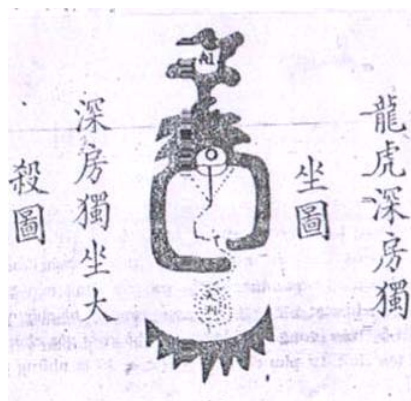 龍虎深房獨
坐圖
深房獨坐大
殺圖